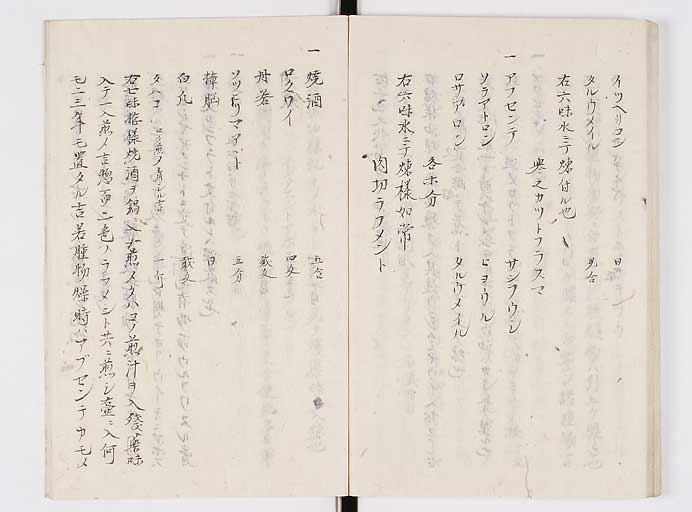 イツヘリコン 日
タルウメイル 見合
右六味水ニテ煉付ル也
奥之カツトフラスマ
一 アフセンテ サンフウシ
ソラアトロン ヒヨウル
ロサアトロン タルウメイル
各等分
右六味水ニテ煉様如常
肉切ラクメント
一 焼酒 五合
ロクワイ 四匁
丹若 弐匁
ソツヒリマアト 五分
樟脳 日
白丸 弐匁
タハコ 一斤
右七味揔様焼酒ヲ鍋入テ煎メタハコノ煎汁ヲ入残薬味
入テ一入煎メ言惣而二色ノラクメント共ニ煎シ壺ニ入何
モ二三年モ置タル吉若腫物燥時ハアブセンテカモメ